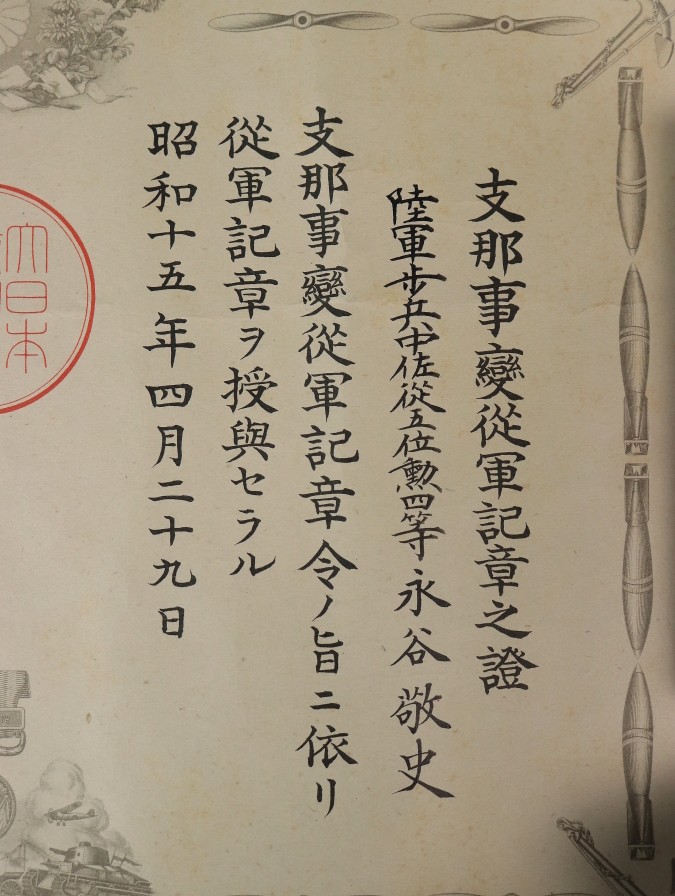 支那事變從軍記章之證
陸軍歩兵中佐從五位勲四等永谷敬史
支那事變從軍記章令ノ旨ニ依リ
從軍記章ヲ授與セラル
昭和十五年四月二十九日
大日本